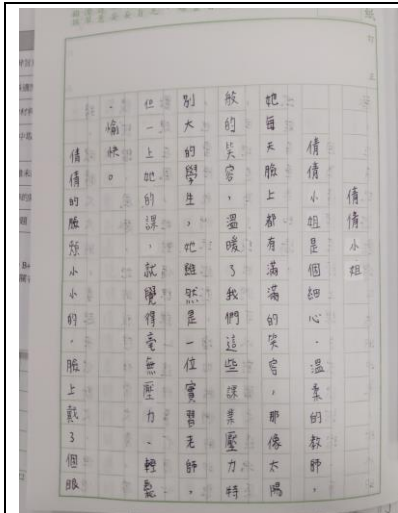 倩倩小姐
倩倩小姐是個細心、溫柔的教師，
她每天臉上都有滿滿的笑容，那像太陽
般的笑容，溫暖了我們這些課業壓力特
別大的學生，她雖然是一位實習老師，
但一上她的課，就覺得毫無壓力、輕鬆
、愉快。
倩倩的臉頰小小的，臉上戴了個眼